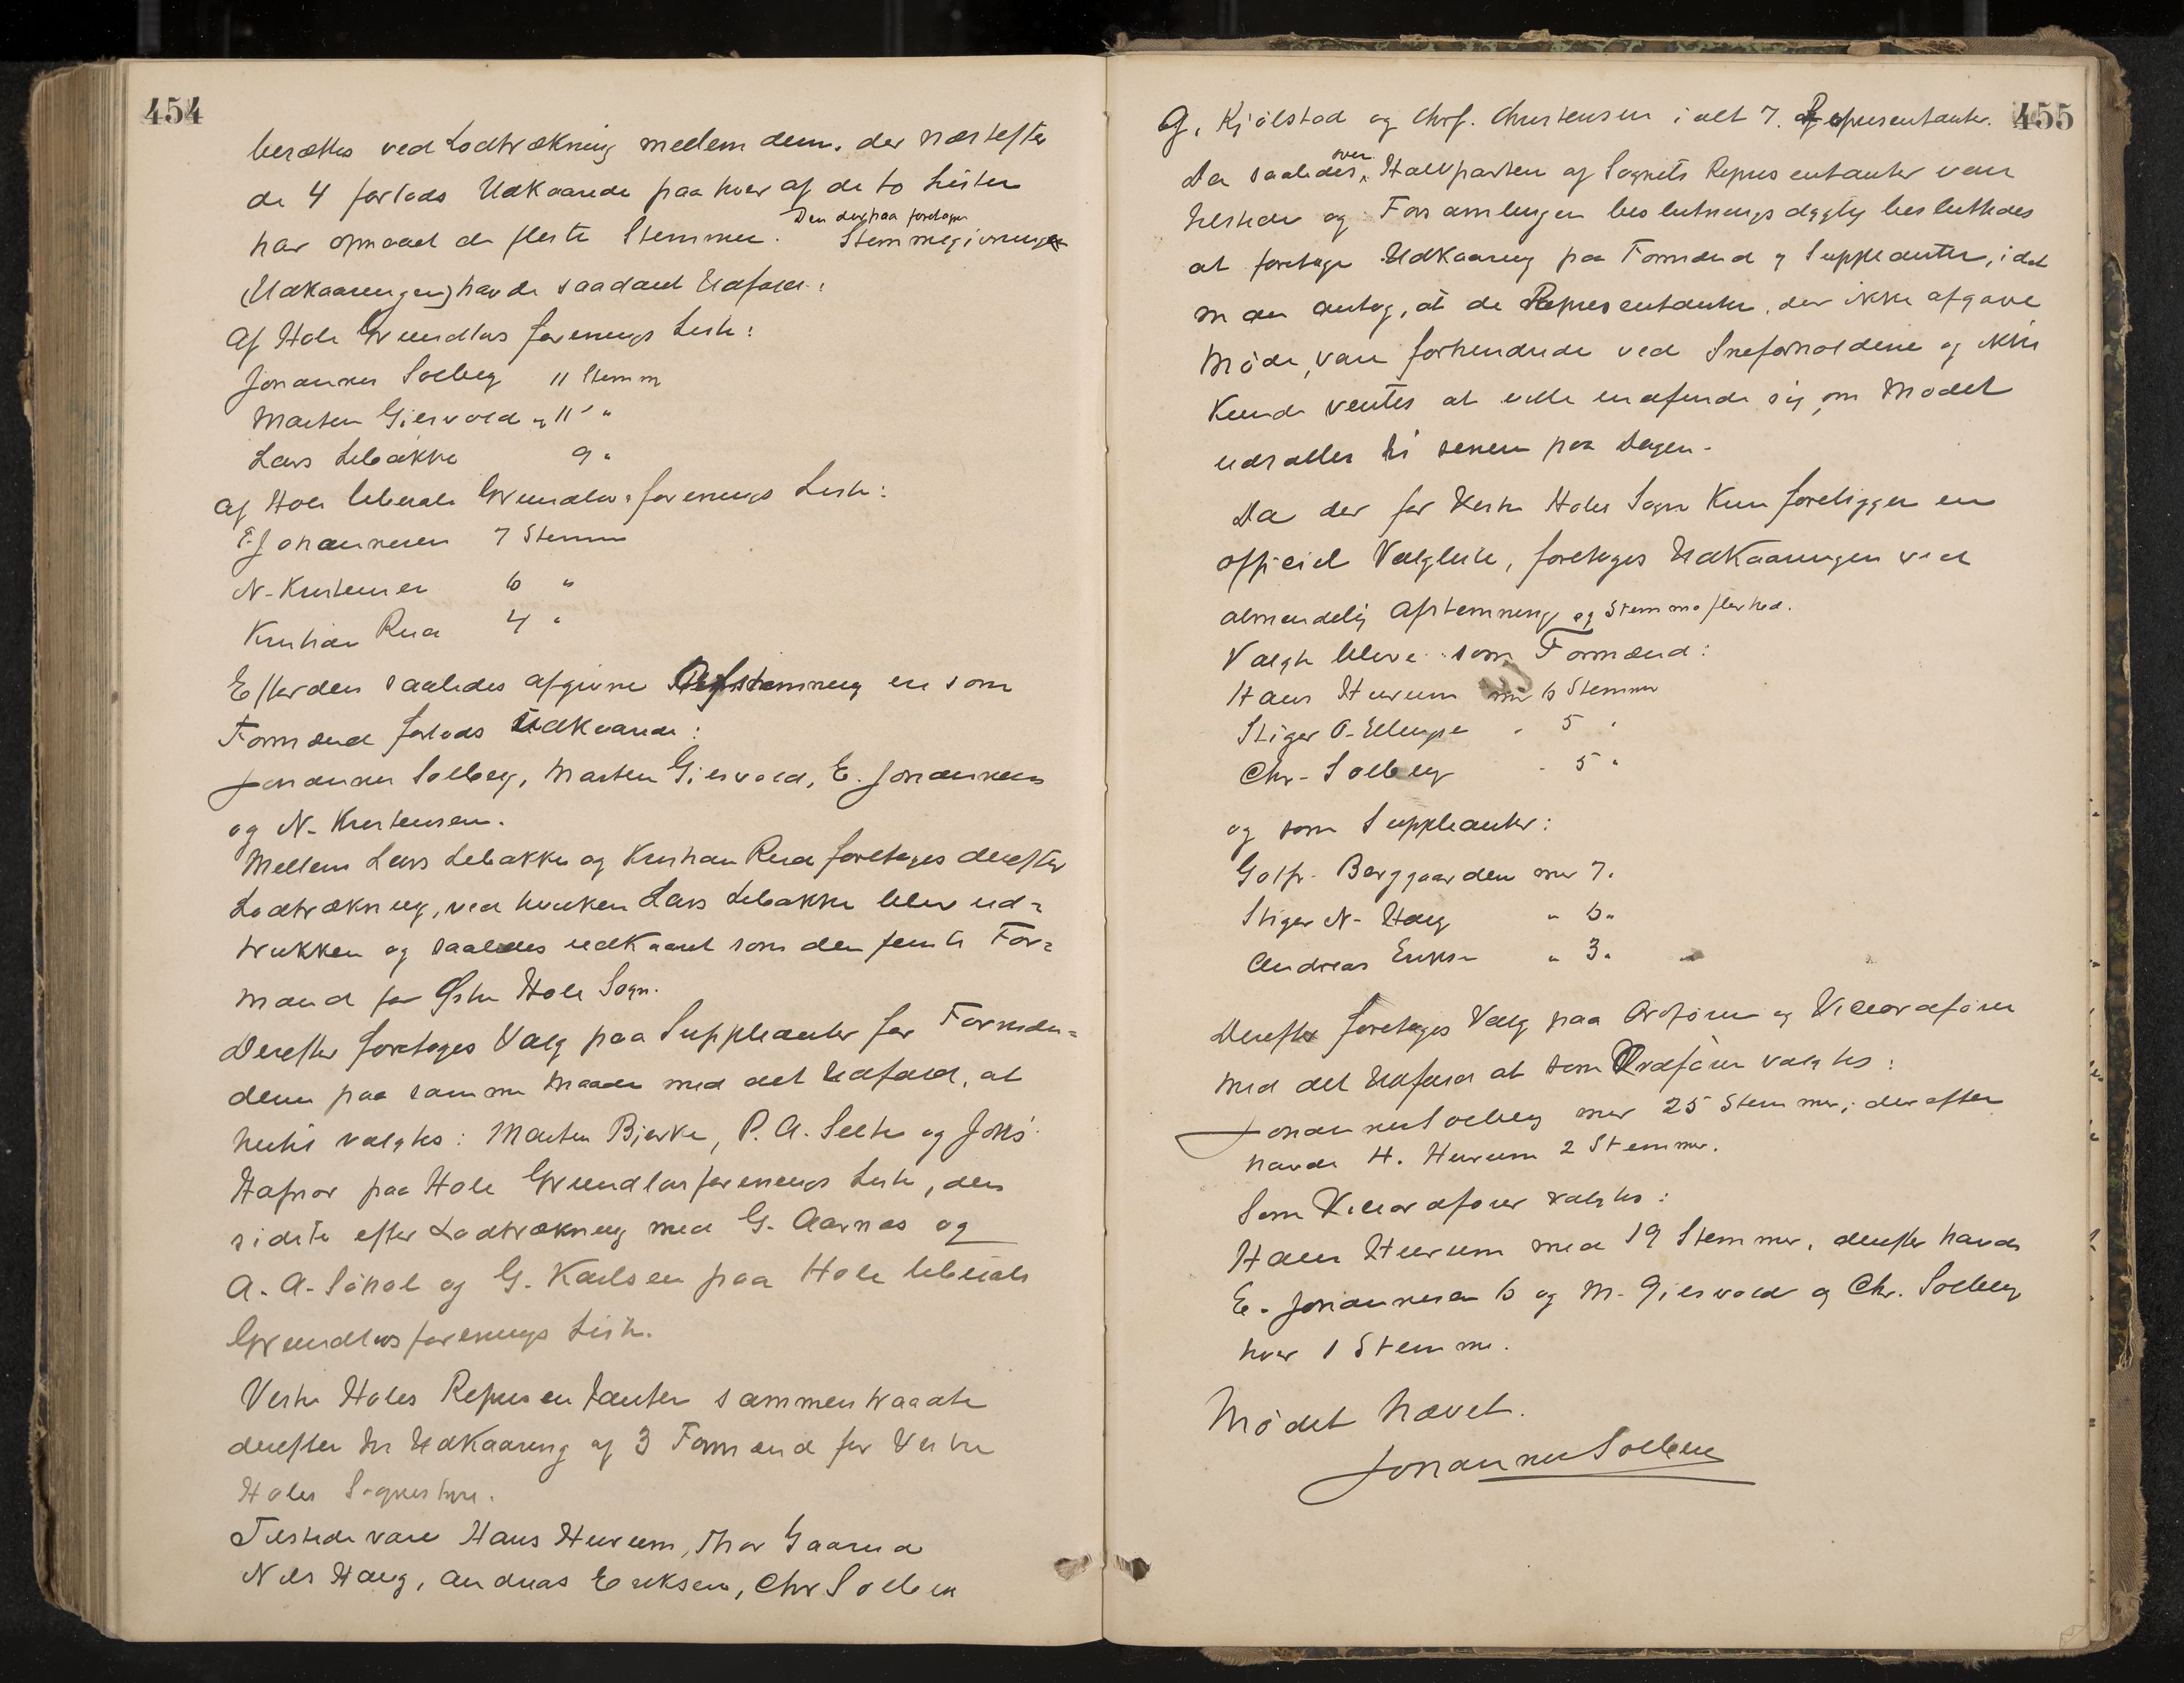 454
besættes ved Lodtrækning mellem dem, der næstefter
de 4 forlods Udkaarede paa hver af de to Lister
har opnaaet de fleste Stemmer. Den derpaa foretagne Stemmegivning
(Udkaaringen) havde saadant Udfald:
Af Hole Grundlovsforenings Liste:
Johannes Solberg 11 Stemm
Marten Gjesvold " 11 "
Lars Lebakke 9 "
Af Hole liberale Grundlovsforenings Liste:
E. Johannesen 7 Stemm
N. Kristensen 6 "
Kristian Rua 4 "
Efter den saaledes afgivne Afstemning er som
Formænd forlods Udkaarede:
Johannes Solberg, Marten Gjesvold, E. Johannesen
og N. Kristensen.
Mellem Lars Lebakke og Kristian Rua foretoges derefter
Lodtrækning, ved hvilken Lars Lebakke blev ud=
trukken og saaledes udkaaret som den femte For=
mand for Østre Hole Sogn.
Derefter foretoges Valg paa Suppleanter for Formæn=
dene paa samme Maade med det Udfald, at
hertil valgtes: Marten Bjerke, P. A. Selte og Johs
Hafnor paa Hole Grundlovsforenings Liste, den
sidste efter Lodtrækning med G. Aarnes og
A. A. Søhol og G. Karlsen paa Hole liberale
Grundlovsforenings Liste.
Vestre Holes Repræsentanter sammentraadte
derefter til Udkaaring af 3 Formænd for Vestre
Holes Sognestyre.
Tilstede vare Hans Hurum, Thor Gaarud
Nils Haug, Andreas Eriksen, Chr Solberg
455
G. Kjølstad og Chrf. Christensen i alt 7. Repræsentanter.
Da saaledes over Halvparten af Sognets Repræsentanter vare
tilstede og Forsamlingen beslutningsdygtig besluttedes
at foretage Udkaaring paa Formænd og Suppleanter, idet
man antog, at de Repræsentanter, der ikke afgave
Møde, vare forhindrede ved Sneforholdene og ikke
kunde ventes at ville indfinde sig, om Mødet
udsattes til senere paa Dagen.
Da der for Vestre Holes Sogn kun foreligger en
officiel Valgliste, foretoges Udkaaringen ved
almindelig Afstemning og Stemmeflerhed.
Valgte bleve som Formænd:
Hans Hurum med 6 Stemmer
Stiger O. Ellingse " 5 "
Chr. Solberg " 5 "
og som Suppleanter:
Gotfr. Borggaarden med 7.
Stiger N. Haug " 6 "
Andreas Eriksn " 3 "
Derefter foretoges Valg paa Ordfører og Viceordfører
med det Udfald at som Ordfører valgtes:
Johannes Solberg med 25 Stemmer; derefter
havde H. Hurum 2 Stemmer.
Som Viceordfører valgtes:
Hans Hurum med 19 Stemmer, derefter havde
E. Johannesen 6 og M. Gjesvold og Chr. Solberg
hver 1 Stemme.
Mødet hævet.
Johannes Solberg